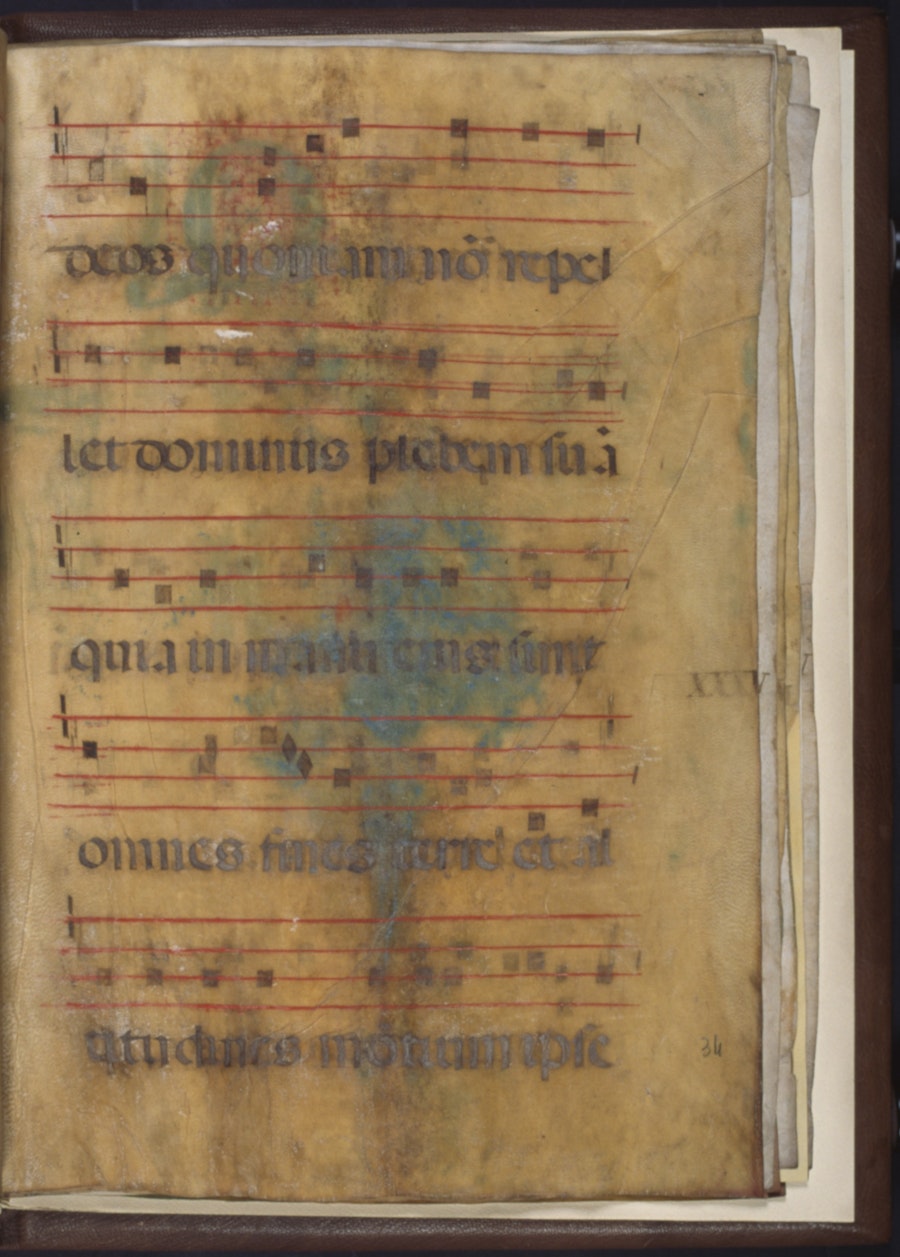 deos quoniam nō repel
let dominus plebem suā
quia in manu eius sunt
omnes fines terre et al
titudines mōtium ipse
34